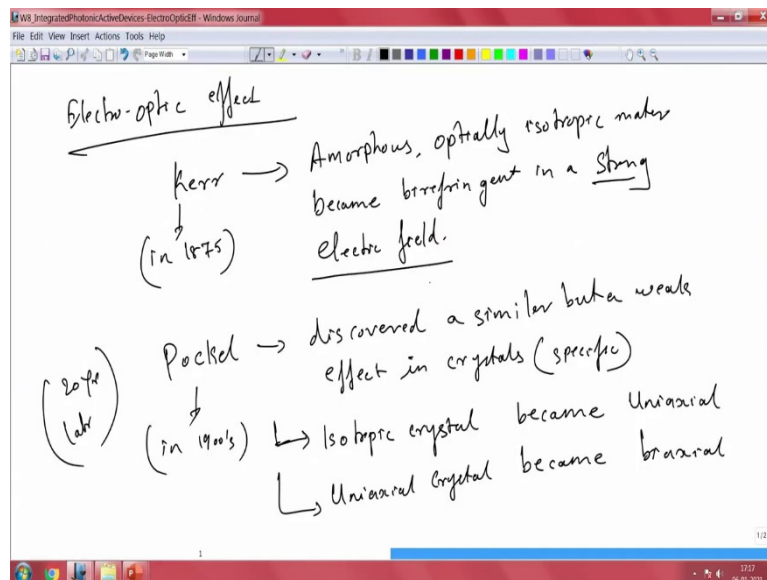 W8_IntegratedPhotonicActiveDevices-ElectroOpticEff - Windows Journal
File Edit View Insert Actions Tools Help
Page Width
Electro-optic effect
Kerr → Amorphous, optically isotropic mater
(in 1875) became birefringent in a Strong
electric field.
Pockel → discovered a similar but a weak
effect in crystals (specific)
(20 yr
later)
(in 1900's) ↳ Isotropic crystal became Uniaxial
↳ Uniaxial crystal became biaxial
1
1/2
17:17
06-01-2021